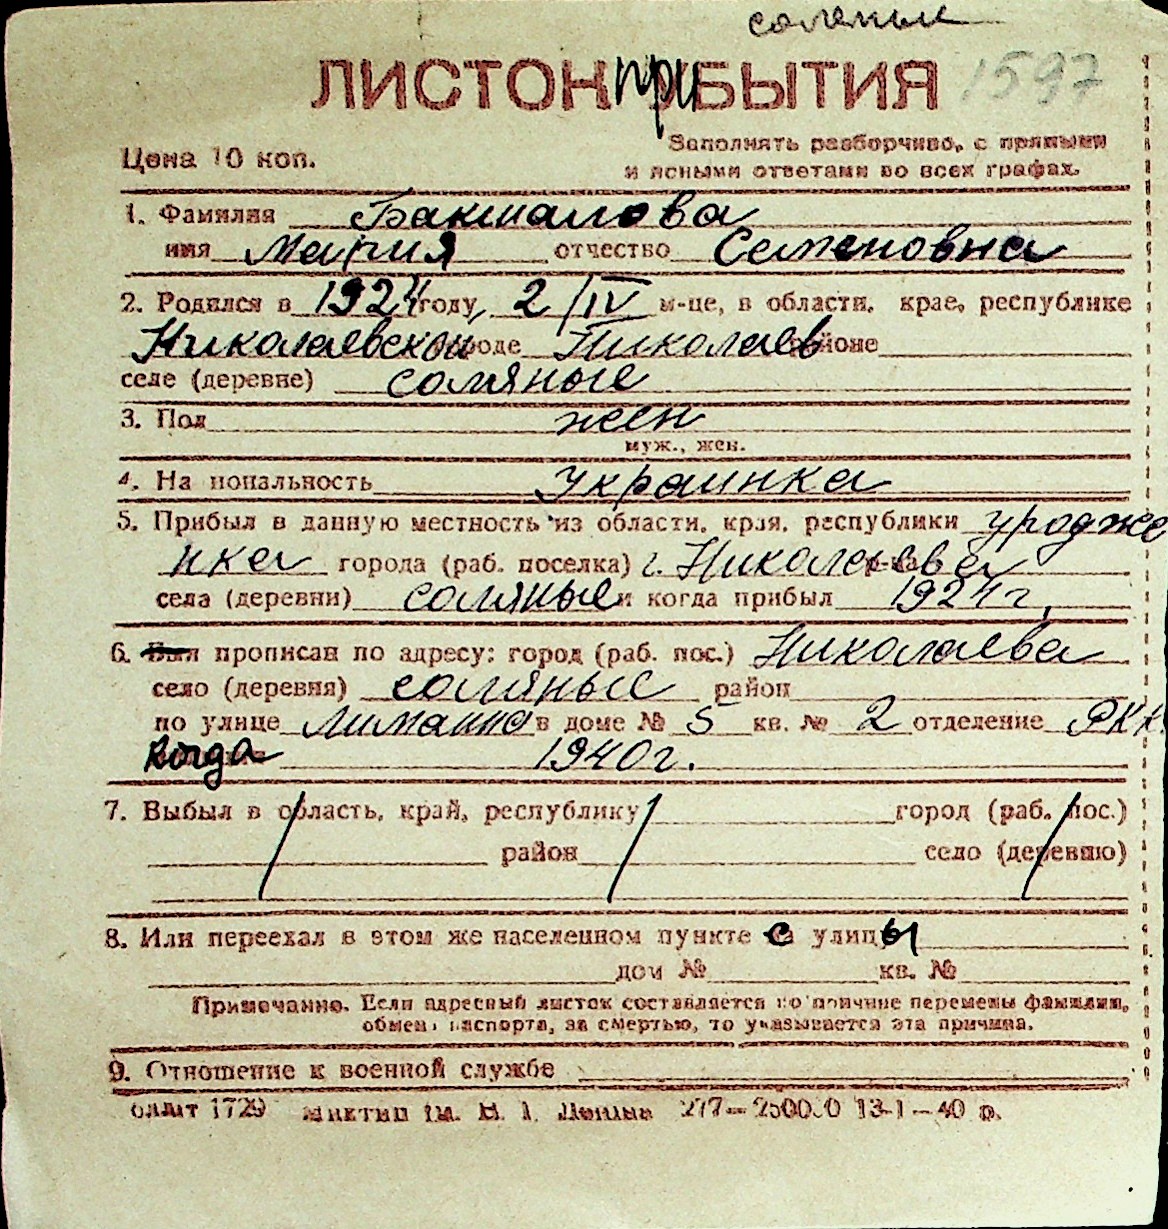 соленые
ЛИСТОК ПРИБЫТИЯ 1597
Цена 10 коп.
Заполнять разборчиво, с прямыми
и ясными ответами во всех графах.
1. Фамилия Бакшалова
имя Мария отчество Семеновна
2. Родился в 1924 году, 2/IV м-це, в области, крае, республике
Николаевской городе Николаев районе
селе (деревне) соляные
3. Пол жен
муж., жен.
4. На иональность украинка
5. Прибыл в данную местность из области, края, республики уродже
нка города (раб. поселка) г. Николаева р-на
села (деревни) соляные и когда прибыл 1924 г.
6. Был прописан по адресу: город (раб. пос.) Николаева
село (деревня) соляные район
по улице Лиманна в доме № 5 кв. № 2 отделение РКК
когда 1940 г.
7. Выбыл в область, край, республику город (раб. пос.)
район село (деревню)
8. Или переехал в этом же населенном пункте с улицы
дом № кв. №
Примечание. Если адресный листок составляется по причине перемены фамилии,
обмена паспорта, за смертью, то указывается эта причина.
9. Отношение к военной службе
1729 им. В. І. Леніна 277—250000 13-1—40 р.